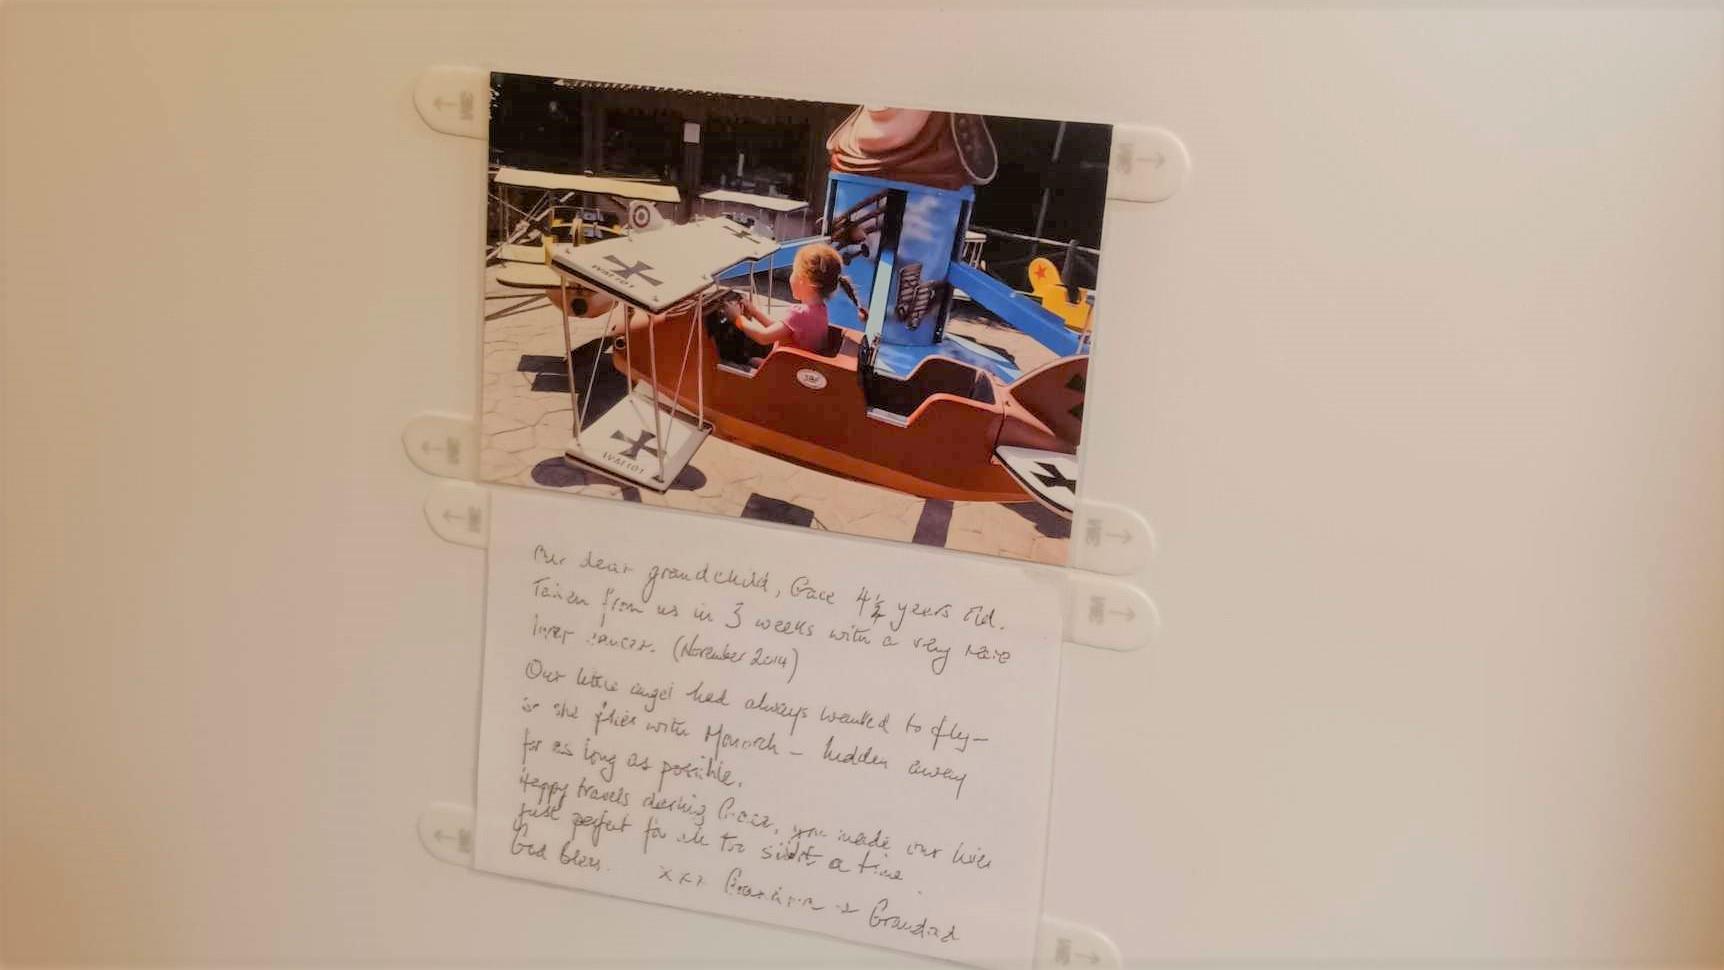 WAR101
WAR101
Our dear grandchild, Grace 4½ years old.
Taken from us in 3 weeks with a very rare
liver cancer. (November 2014)
Our little angel had always wanted to fly -
so she flies with Monarch - hidden away
for as long as possible.
Happy travels darling Grace, you made our lives
just perfect for all too short a time.
God bless. xxx Grandma & Grandad